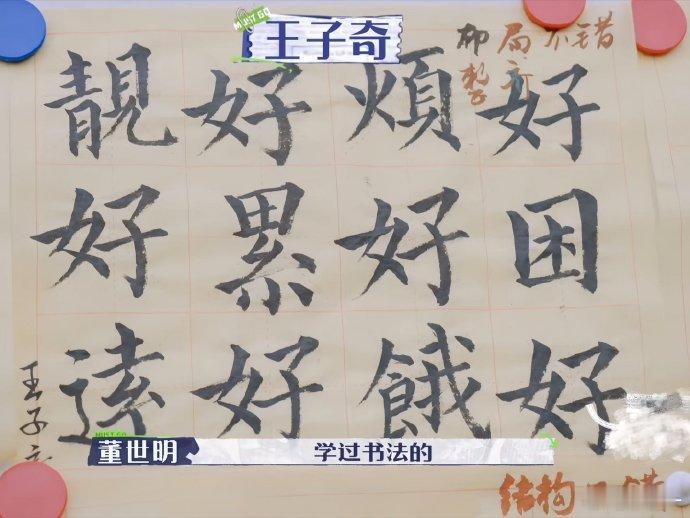 MUST GO
王子奇
布局不错
整齐
好困好
煩好餓
好累好
靚好逺
王子奇
结构
MUST GO
董世明 学过书法的